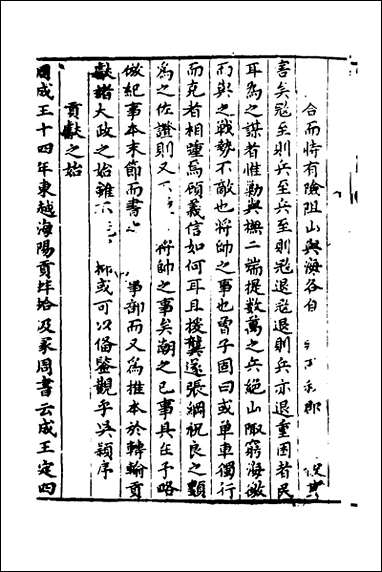 合而恃有險阻山與海各自
害矣冦至則兵至兵至則冦退冦退則兵亦退重困者民
耳為之謀者惟勦與撫二端提數萬之兵絕山陬窮海徼
而與之戰勢不敵也將帥之事也曾子固曰或單車獨行
而克者相踵焉顧義信如何耳且援龔遂張綱祝良之類
為之佐證則又 將帥之事矣潮之已事具在予略
倣紀事本末節而書之 事部而又為推本於轉輸貢
獻諸大政之始雖不 抑或可以備鑒觀乎吳穎序
貢獻之始
周成王十四年東越海陽貢 蛤汲冢周書云成王定四